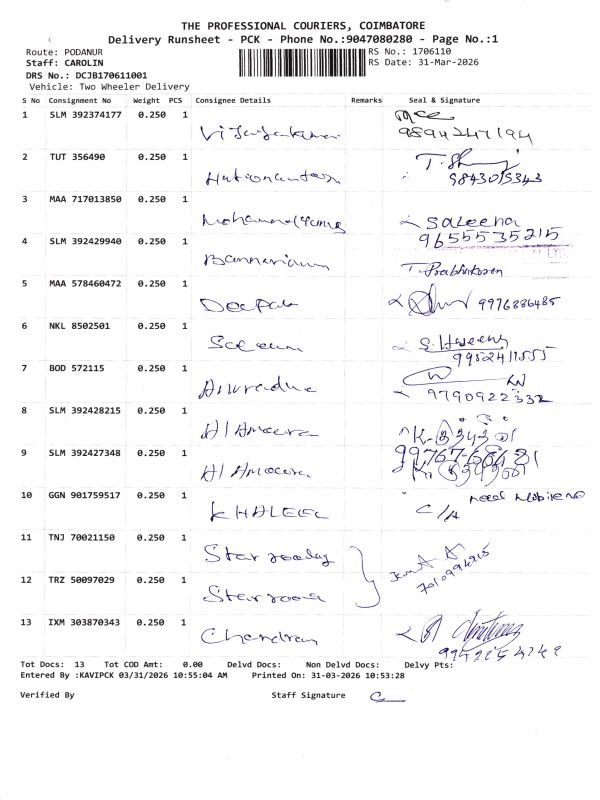 THE PROFESSIONAL COURIERS, COIMBATORE
Delivery Runsheet - PCK - Phone No.:9047080280 - Page No.:1
Route: PODANUR
RS No.: 1706110
Staff: CAROLIN
RS Date: 31-Mar-2026
DRS No.: DCJB170611001
Vehicle: Two Wheeler Delivery
S No Consignment No Weight PCS Consignee Details Remarks Seal & Signature
1 SLM 392374177 0.250 1
2 TUT 356490 0.250 1
9843015343
3 MAA 717013850 0.250 1
Saleena
9655535215
4 SLM 392429940 0.250 1
T. Prabhakaran
5 MAA 578460472 0.250 1 Deepak
9976886485
6 NKL 8502501 0.250 1 Saleem
7 BOD 572115 0.250 1 Anuradha
9790922332
8 SLM 392428215 0.250 1 Al Ameera
9 SLM 392427348 0.250 1 Al Ameera
10 GGN 901759517 0.250 1 KHALEEL
11 TNJ 70021150 0.250 1 Star
12 TRZ 50097029 0.250 1 Star
13 IXM 303870343 0.250 1 Chandran
Tot Docs: 13 Tot COD Amt: 0.00 Delvd Docs: Non Delvd Docs: Delvy Pts:
Entered By :KAVIPCK 03/31/2026 10:55:04 AM Printed On: 31-03-2026 10:53:28
Verified By Staff Signature